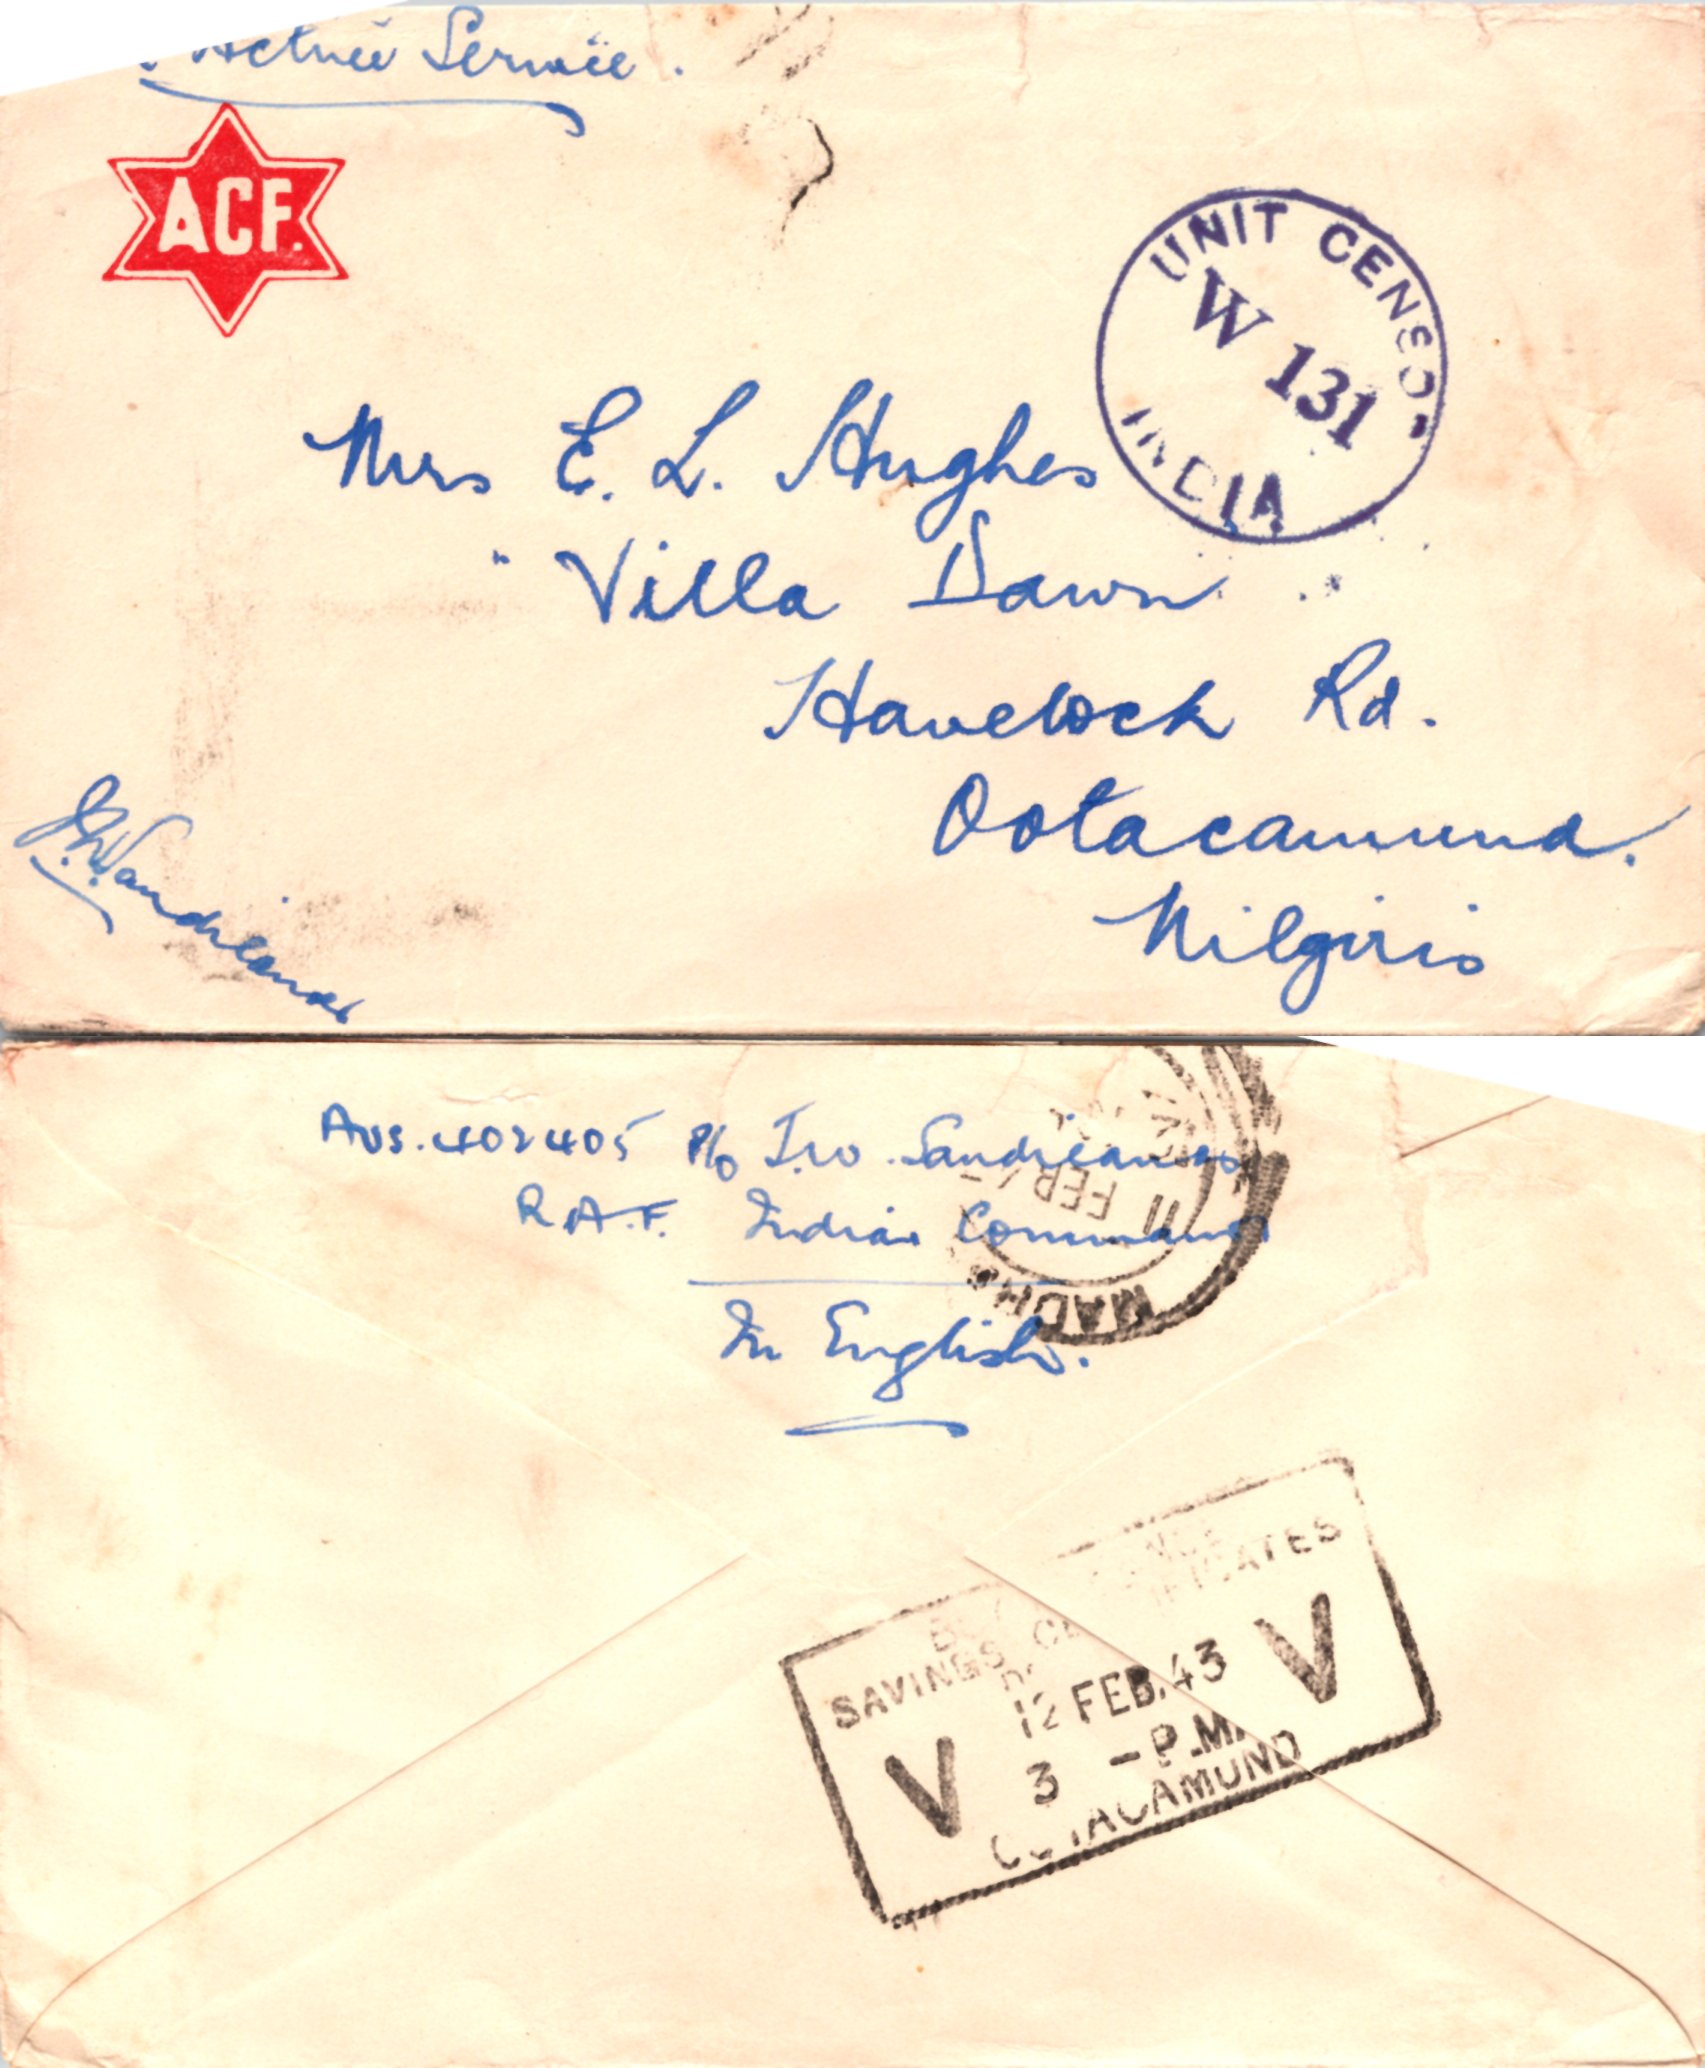 Active Service.
ACF.
UNIT CENSOR
W 131
INDIA
Mrs E. L. Hughes
"Villa Dawn"
Havelock Rd.
Ootacamund.
Nilgiris
Aus. 402405 P/O I.W. Sandilands
R.A.F. Indian Command
In English.
11 FEB
SAVINGS CERTIFICATES
12 FEB. 43
V V
3 - P.M.
OOTACAMUND